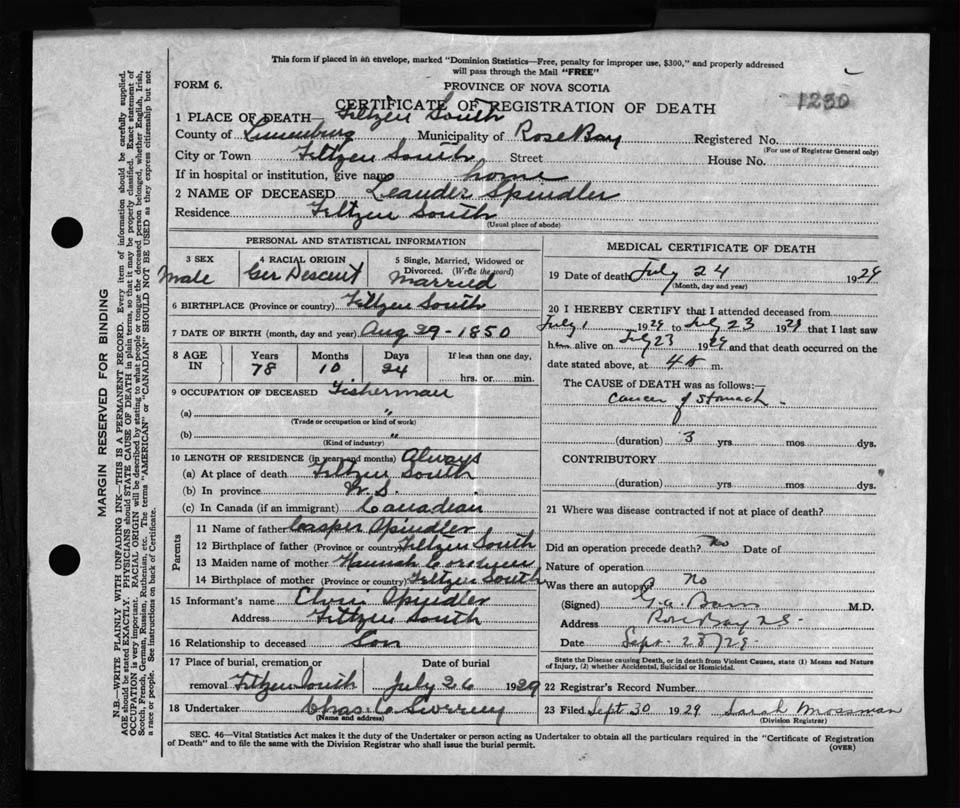 This form if placed in an envelope, marked "Dominion Statistics—Free, penalty for improper use, $300," and properly addressed
will pass through the Mail "FREE"
FORM 6.
PROVINCE OF NOVA SCOTIA
1230
CERTIFICATE OF REGISTRATION OF DEATH
1 PLACE OF DEATH— Feltzen South
County of Lunenburg Municipality of Rose Bay Registered No.
(For use of Registrar General only)
City or Town Feltzen South Street House No.
If in hospital or institution, give name home
2 NAME OF DECEASED Leander Spindler
Residence Feltzen South
(Usual place of abode)
PERSONAL AND STATISTICAL INFORMATION
3 SEX 4 RACIAL ORIGIN 5 Single, Married, Widowed or
Divorced. (Write the word)
Male Ger Descent Married
6 BIRTHPLACE (Province or country) Feltzen South
7 DATE OF BIRTH (month, day and year) Aug 29-1850
8 AGE IN Years Months Days If less than one day,
78 10 24 hrs. or min.
9 OCCUPATION OF DECEASED Fisherman
(a) "
(Trade or occupation or kind of work)
(b) "
(Kind of industry)
10 LENGTH OF RESIDENCE (in years and months) Always
(a) At place of death Feltzen South
(b) In province N.S.
(c) In Canada (if an immigrant) Canadian
Parents
11 Name of father Casper Spindler
12 Birthplace of father (Province or country) Feltzen South
13 Maiden name of mother Hannah
14 Birthplace of mother (Province or country) Feltzen South
15 Informant's name Spindler
Address Feltzen South
16 Relationship to deceased Son
17 Place of burial, cremation or Date of burial
removal Feltzen South July 26 1929
18 Undertaker Chas C
(Name and address)
MEDICAL CERTIFICATE OF DEATH
19 Date of death July 24 1929
(Month, day and year)
20 I HEREBY CERTIFY that I attended deceased from
July 1 1929 to July 23 1929 that I last saw
him alive on July 23 1929 and that death occurred on the
date stated above, at 4 m.
The CAUSE OF DEATH was as follows:—
Cancer of Stomach -
(duration) 3 yrs. mos. dys.
CONTRIBUTORY
(duration) yrs. mos. dys.
21 Where was disease contracted if not at place of death?
Did an operation precede death? No Date of
Nature of operation
Was there an autopsy? No
(Signed) M.D.
Address Rose Bay
Date Sept. 28/29.
State the Disease causing Death, or in death from Violent Causes, state (1) Means and Nature
of Injury, (2) whether Accidental, Suicidal or Homicidal.
22 Registrar's Record Number
23 Filed Sept 30 1929 Sarah Mossman
(Division Registrar)
SEC. 46—Vital Statistics Act makes it the duty of the Undertaker or person acting as Undertaker to obtain all the particulars required in the "Certificate of Registration
of Death" and to file the same with the Division Registrar who shall issue the burial permit.
(OVER)
MARGIN RESERVED FOR BINDING
N.B.—WRITE PLAINLY WITH UNFADING INK—THIS IS A PERMANENT RECORD. Every item of information should be carefully supplied.
AGE should be stated EXACTLY. PHYSICIANS should STATE CAUSE OF DEATH in plain terms, so that it may be properly classified. Exact statement of
OCCUPATION is very important. RACIAL ORIGIN will be described by stating to what people or tongue the deceased person belonged, whether English, Irish,
Scotch, French, German, Russian, Ruthenian, etc. The terms "AMERICAN" or "CANADIAN" SHOULD NOT BE USED as they express citizenship but not
a race or people. See instructions on back of Certificate.